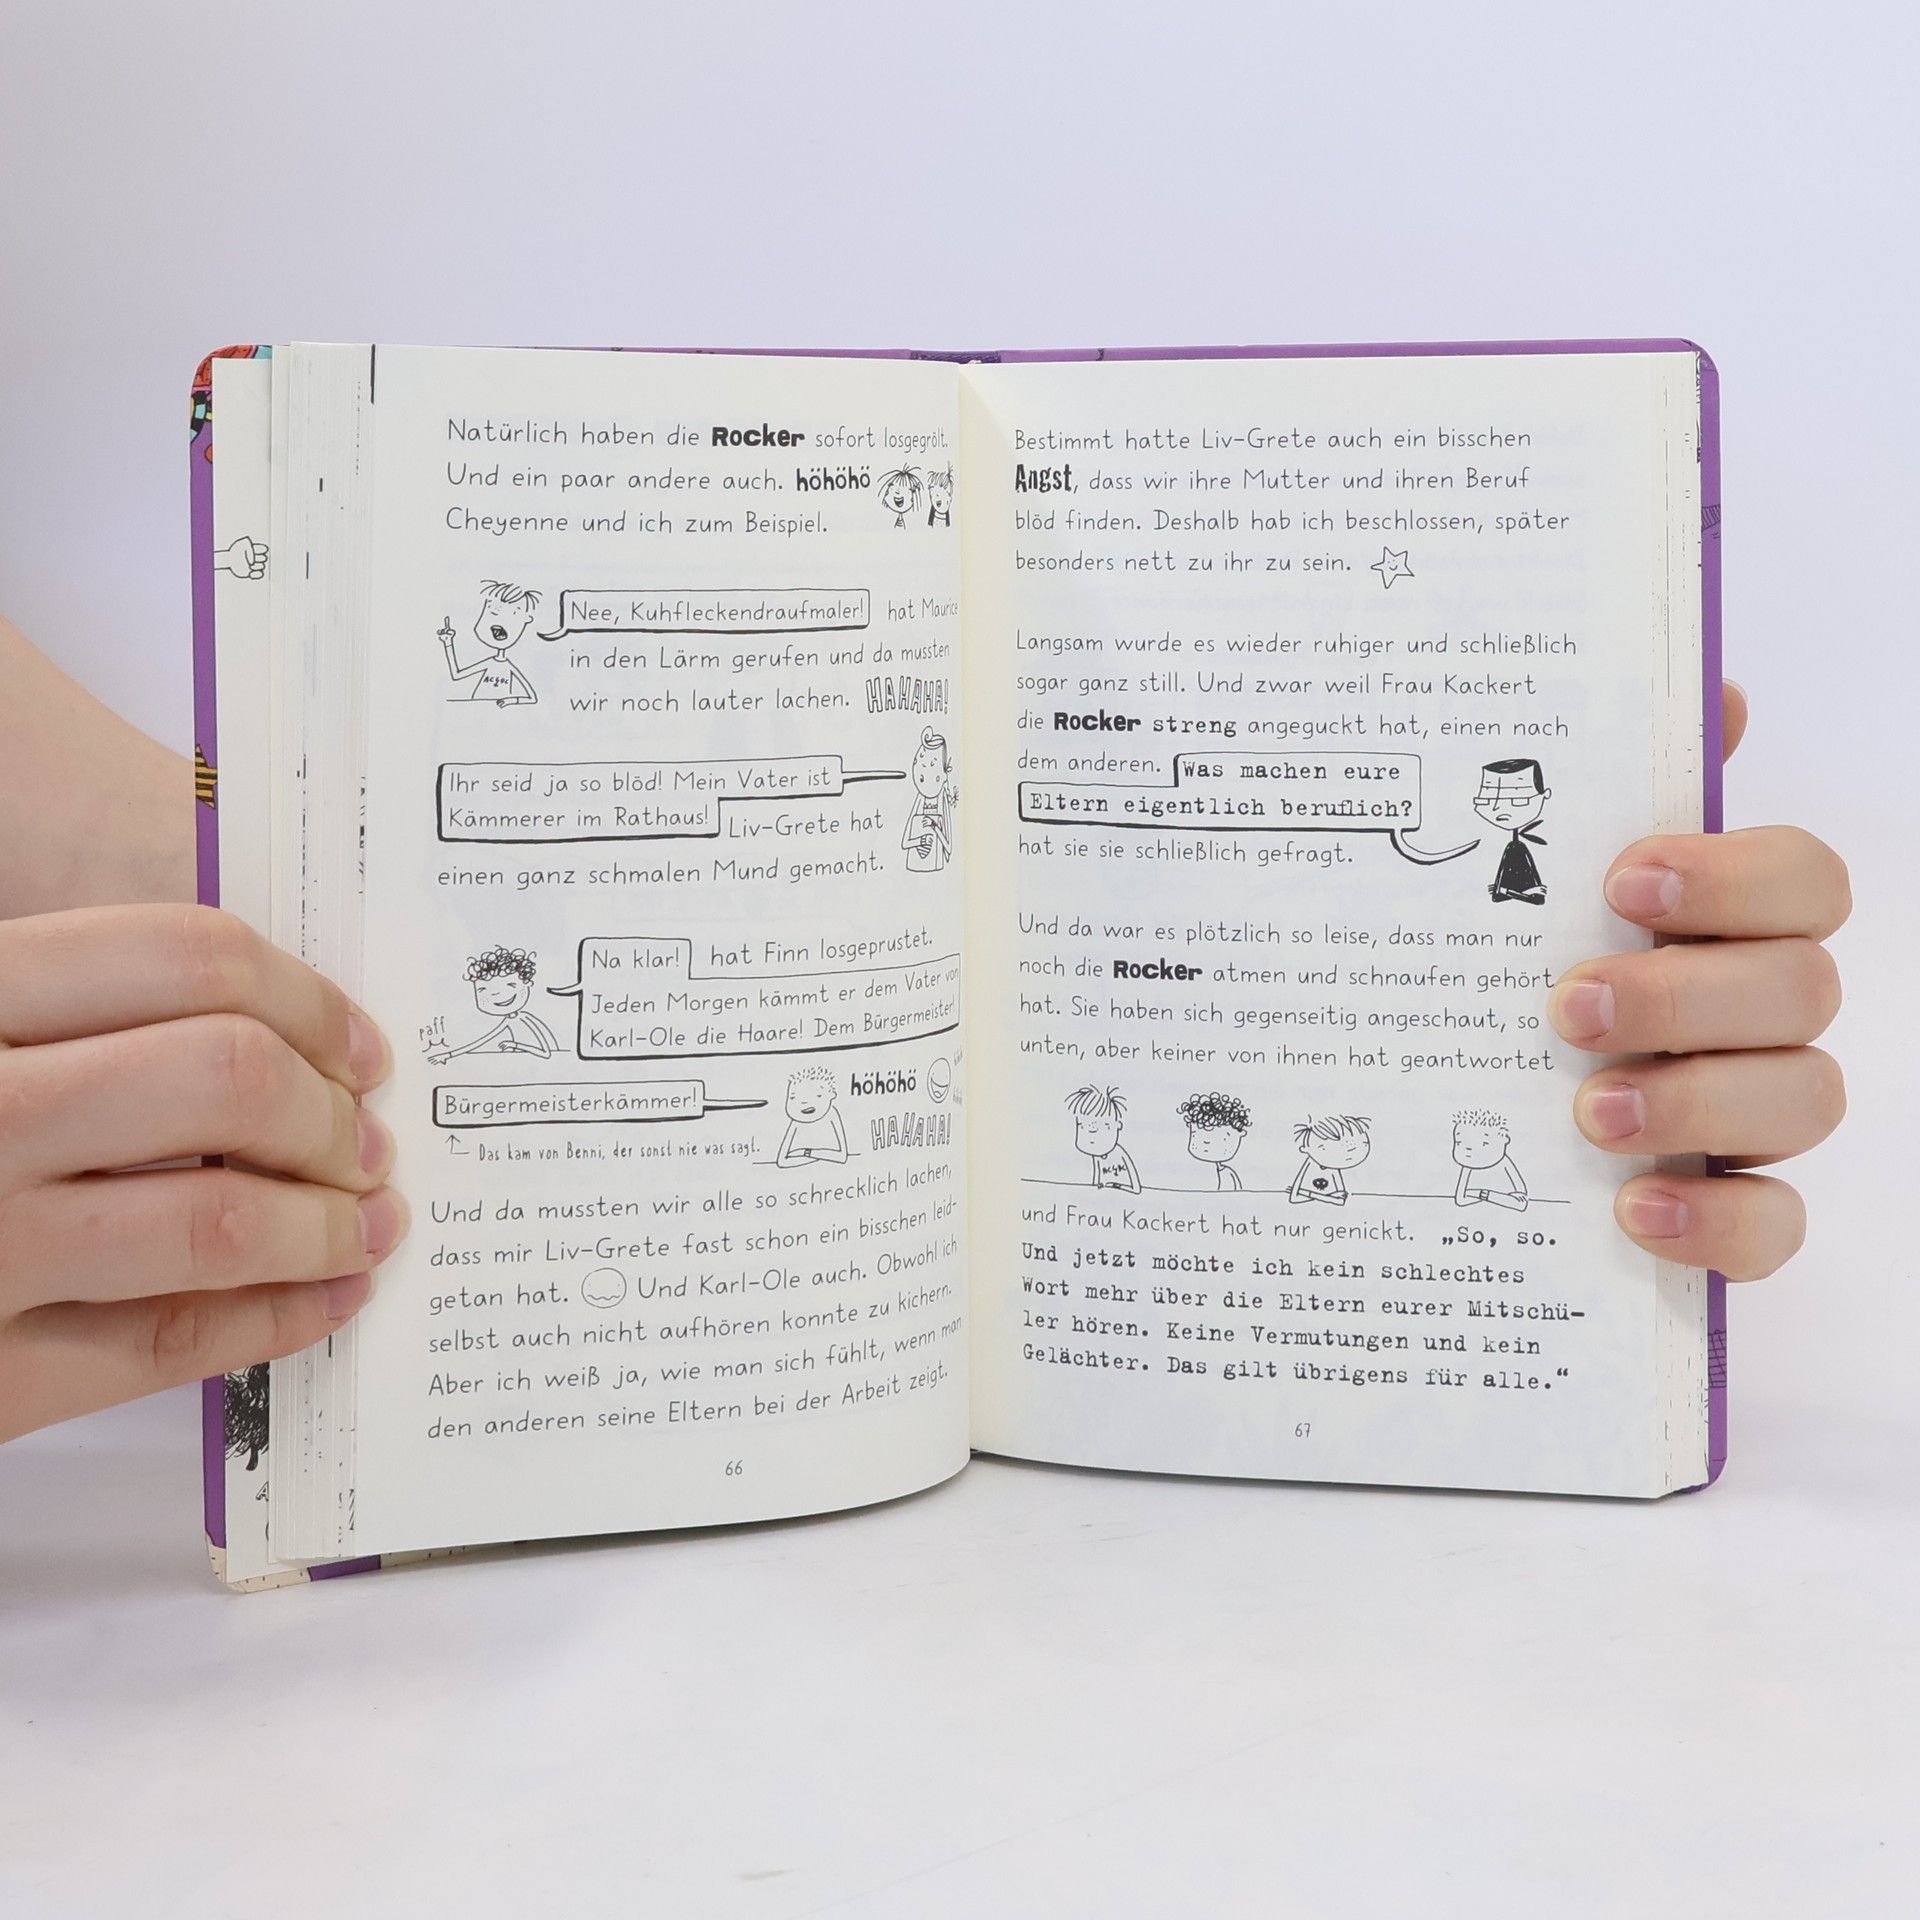 Natürlich haben die Rocker sofort losgegrölt.
Und ein paar andere auch. höhöhö
Cheyenne und ich zum Beispiel.
Nee, Kuhfleckendraufmaler! hat Maurice
in den Lärm gerufen und da mussten
wir noch lauter lachen. HAHAHA!
Ihr seid ja so blöd! Mein Vater ist
Kämmerer im Rathaus! Liv-Grete hat
einen ganz schmalen Mund gemacht.
Na klar! hat Finn losgeprustet.
Jeden Morgen kämmt er dem Vater von
Karl-Ole die Haare! Dem Bürgermeister!
paff
höhöhö
Bürgermeisterkämmer!
HAHAHA!
Das kam von Benni, der sonst nie was sagt.
Und da mussten wir alle so schrecklich lachen,
dass mir Liv-Grete fast schon ein bisschen leid-
getan hat. Und Karl-Ole auch. Obwohl ich
selbst auch nicht aufhören konnte zu kichern.
Aber ich weiß ja, wie man sich fühlt, wenn man
den anderen seine Eltern bei der Arbeit zeigt.
66
Bestimmt hatte Liv-Grete auch ein bisschen
Angst, dass wir ihre Mutter und ihren Beruf
blöd finden. Deshalb hab ich beschlossen, später
besonders nett zu ihr zu sein.
Langsam wurde es wieder ruhiger und schließlich
sogar ganz still. Und zwar weil Frau Kackert
die Rocker streng angeguckt hat, einen nach
dem anderen. Was machen eure
Eltern eigentlich beruflich?
hat sie sie schließlich gefragt.
Und da war es plötzlich so leise, dass man nur
noch die Rocker atmen und schnaufen gehört
hat. Sie haben sich gegenseitig angeschaut, so
unten, aber keiner von ihnen hat geantwortet
und Frau Kackert hat nur genickt. „So, so.
Und jetzt möchte ich kein schlechtes
Wort mehr über die Eltern eurer Mitschü-
ler hören. Keine Vermutungen und kein
Gelächter. Das gilt übrigens für alle.“
67